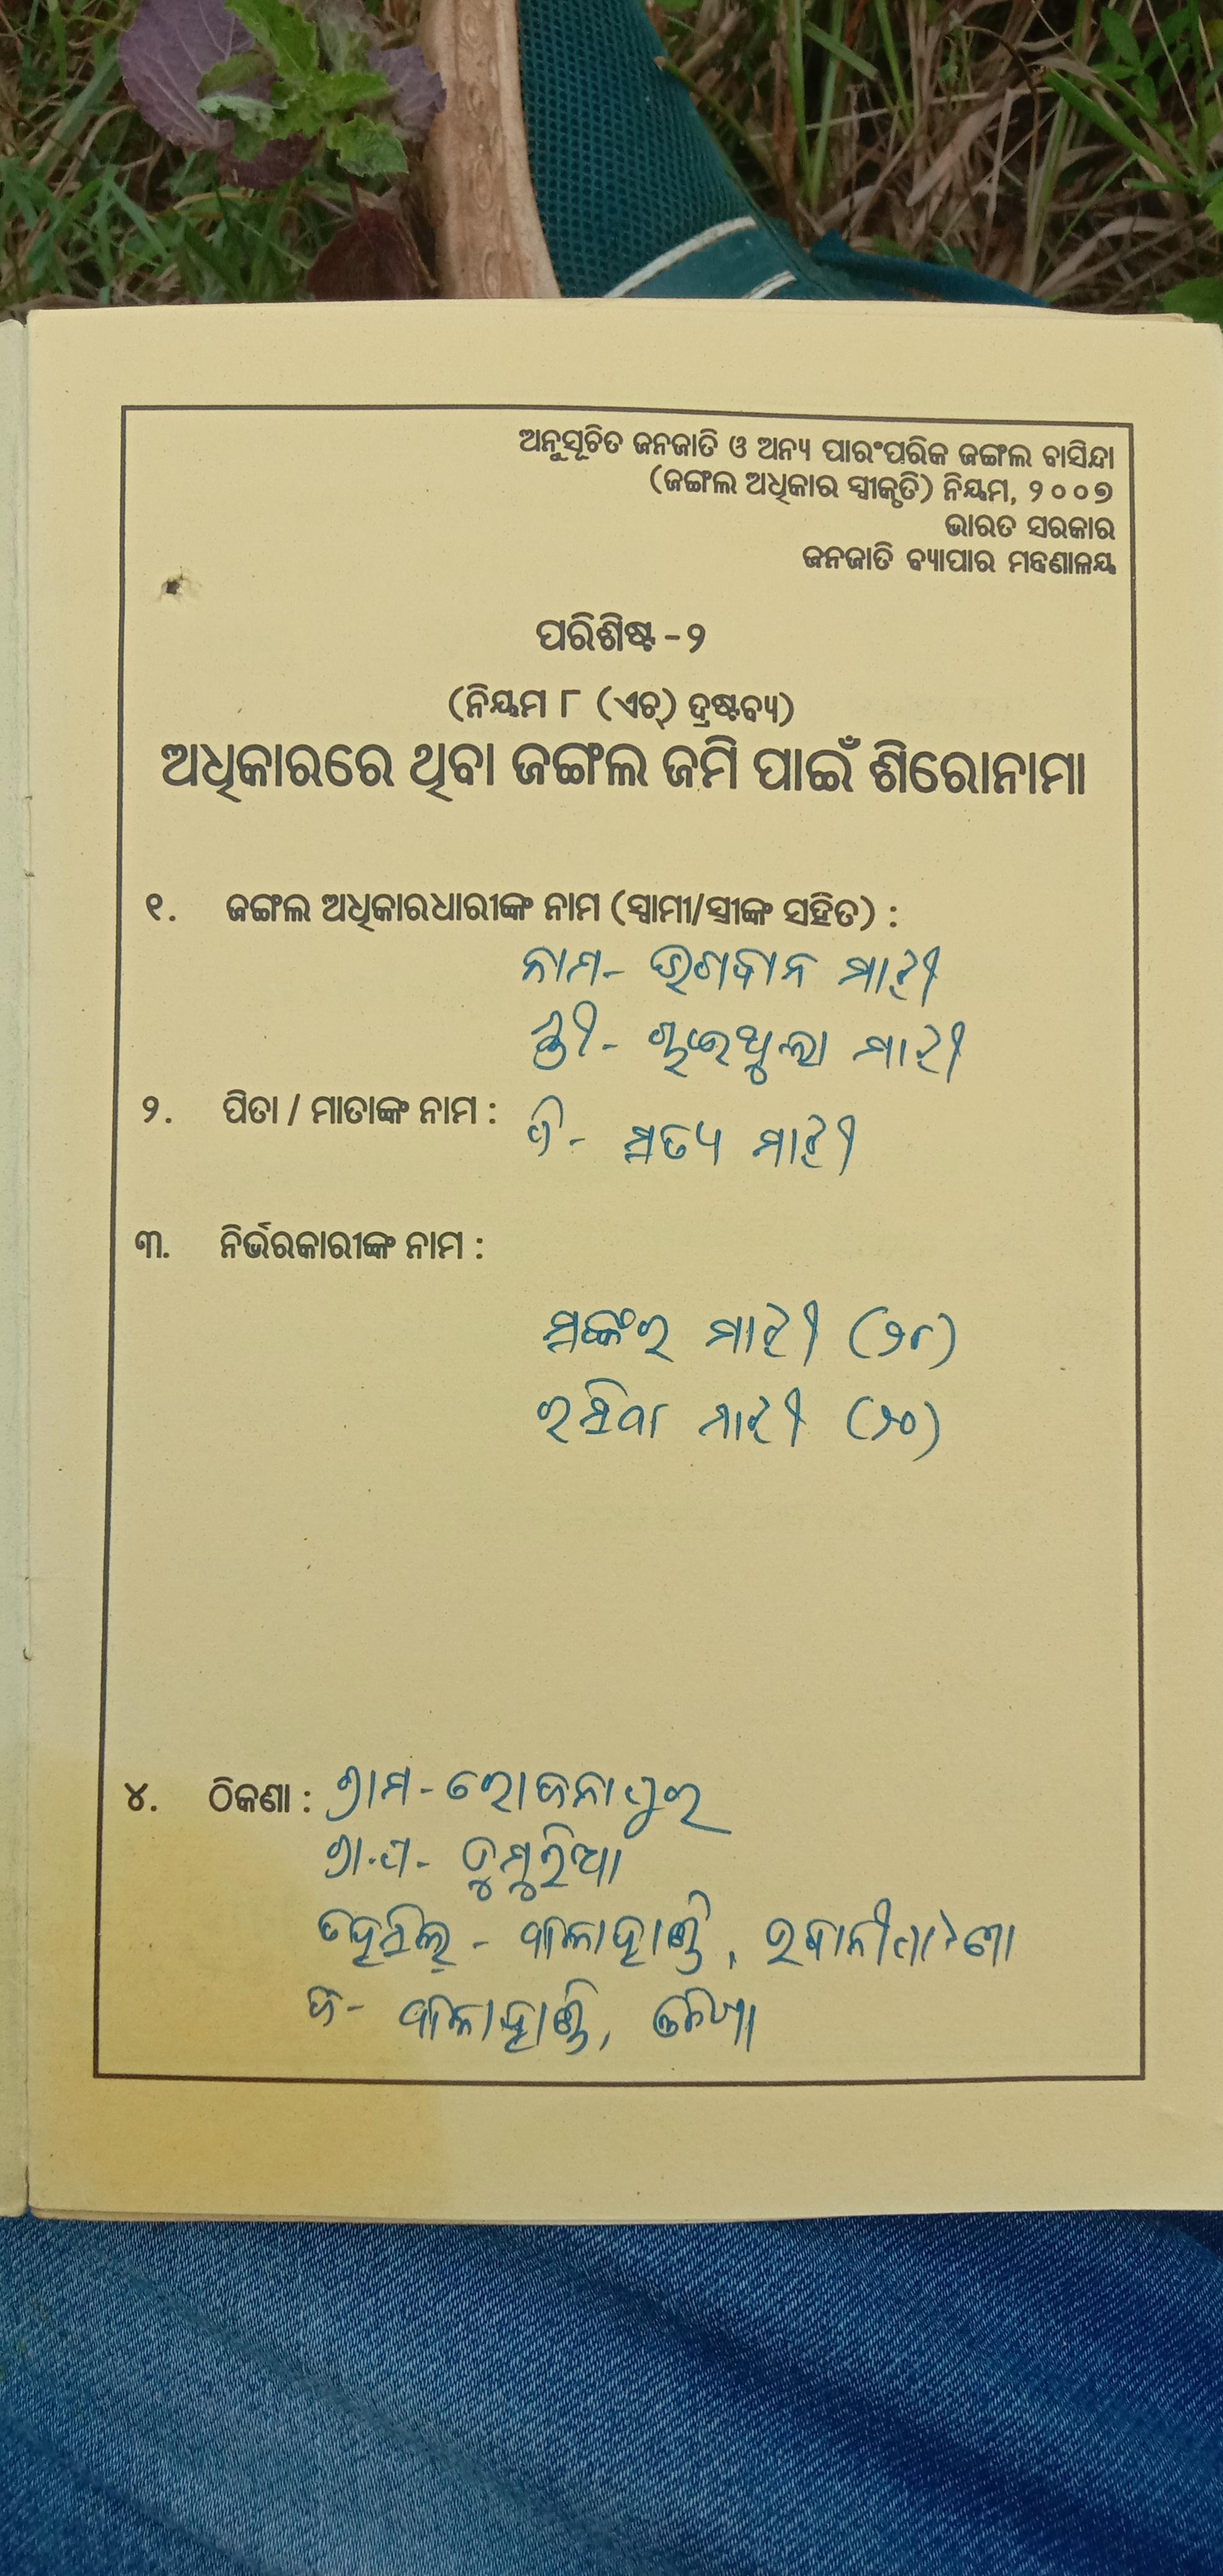 ଅନୁସୂଚିତ ଜନଜାତି ଓ ଅନ୍ୟ ପାରଂପରିକ ଜଙ୍ଗଲ ବାସିନ୍ଦା
(ଜଙ୍ଗଲ ଅଧିକାର ସ୍ୱୀକୃତି) ନିୟମ, ୨୦୦୭
ଭାରତ ସରକାର
ଜନଜାତି ବ୍ୟାପାର ମନ୍ତ୍ରଣାଳୟ
ପରିଶିଷ୍ଟ - ୨
(ନିୟମ ୮ (ଏଚ୍) ଦ୍ରଷ୍ଟବ୍ୟ)
ଅଧିକାରରେ ଥିବା ଜଙ୍ଗଲ ଜମି ପାଇଁ ଶିରୋନାମା
୧. ଜଙ୍ଗଲ ଅଧିକାରଧାରୀଙ୍କ ନାମ (ସ୍ୱାମୀ/ସ୍ତ୍ରୀଙ୍କ ସହିତ) :
ନାମ- ଭଗବାନ ମାଝୀ
ସ୍ତ୍ରୀ- ମାଝୀ
୨. ପିତା / ମାତାଙ୍କ ନାମ : ପି- ସତ୍ୟ ମାଝୀ
୩. ନିର୍ଭରକାରୀଙ୍କ ନାମ :
ମାଝୀ
ମାଝୀ (୨୦)
୪. ଠିକଣା : ଗ୍ରାମ-
ଗ୍ରା.ପ- ଡୁମୁରିଆ
ତହସିଲ୍ - କଳାହାଣ୍ଡି, ଭବାନୀପାଟଣା
ଜି- କଳାହାଣ୍ଡି, ଓଡିଶା